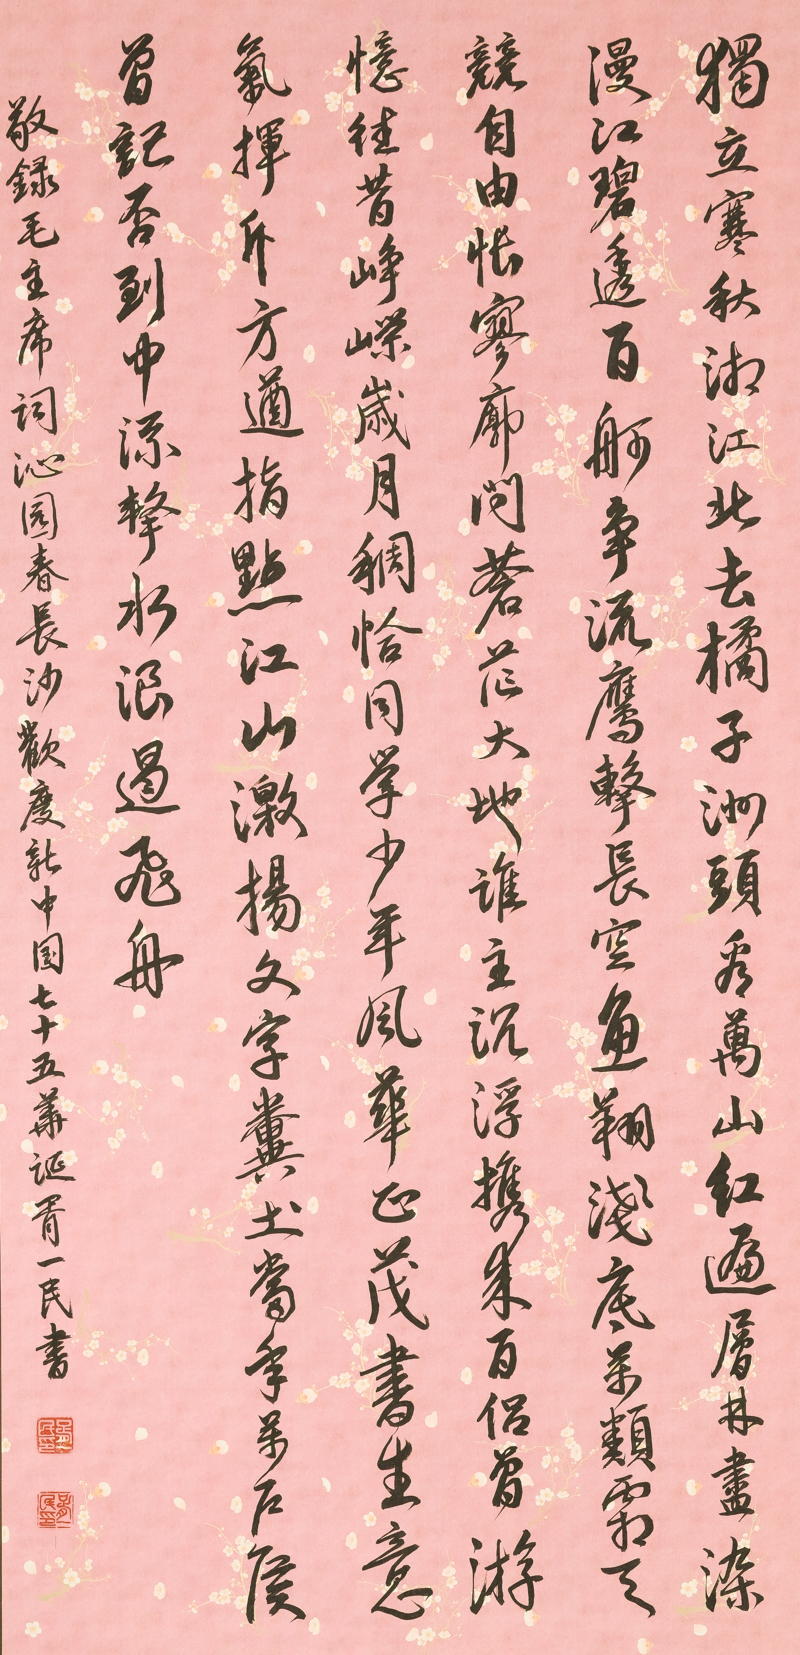 獨立寒秋湘江北去橘子洲頭看萬山紅遍層林盡染
漫江碧透百舸争流鷹擊長空魚翔淺底萬類霜天
競自由悵寥廓問蒼茫大地誰主沉浮攜來百侣曾游
憶往昔崢嶸歲月稠恰同學少年風華正茂書生意
氣揮斥方遒指點江山激揚文字糞土當年萬户侯
曾記否到中流擊水浪遏飛舟
敬録毛主席詞沁園春長沙歡度新中國七十五華誕胥一民書